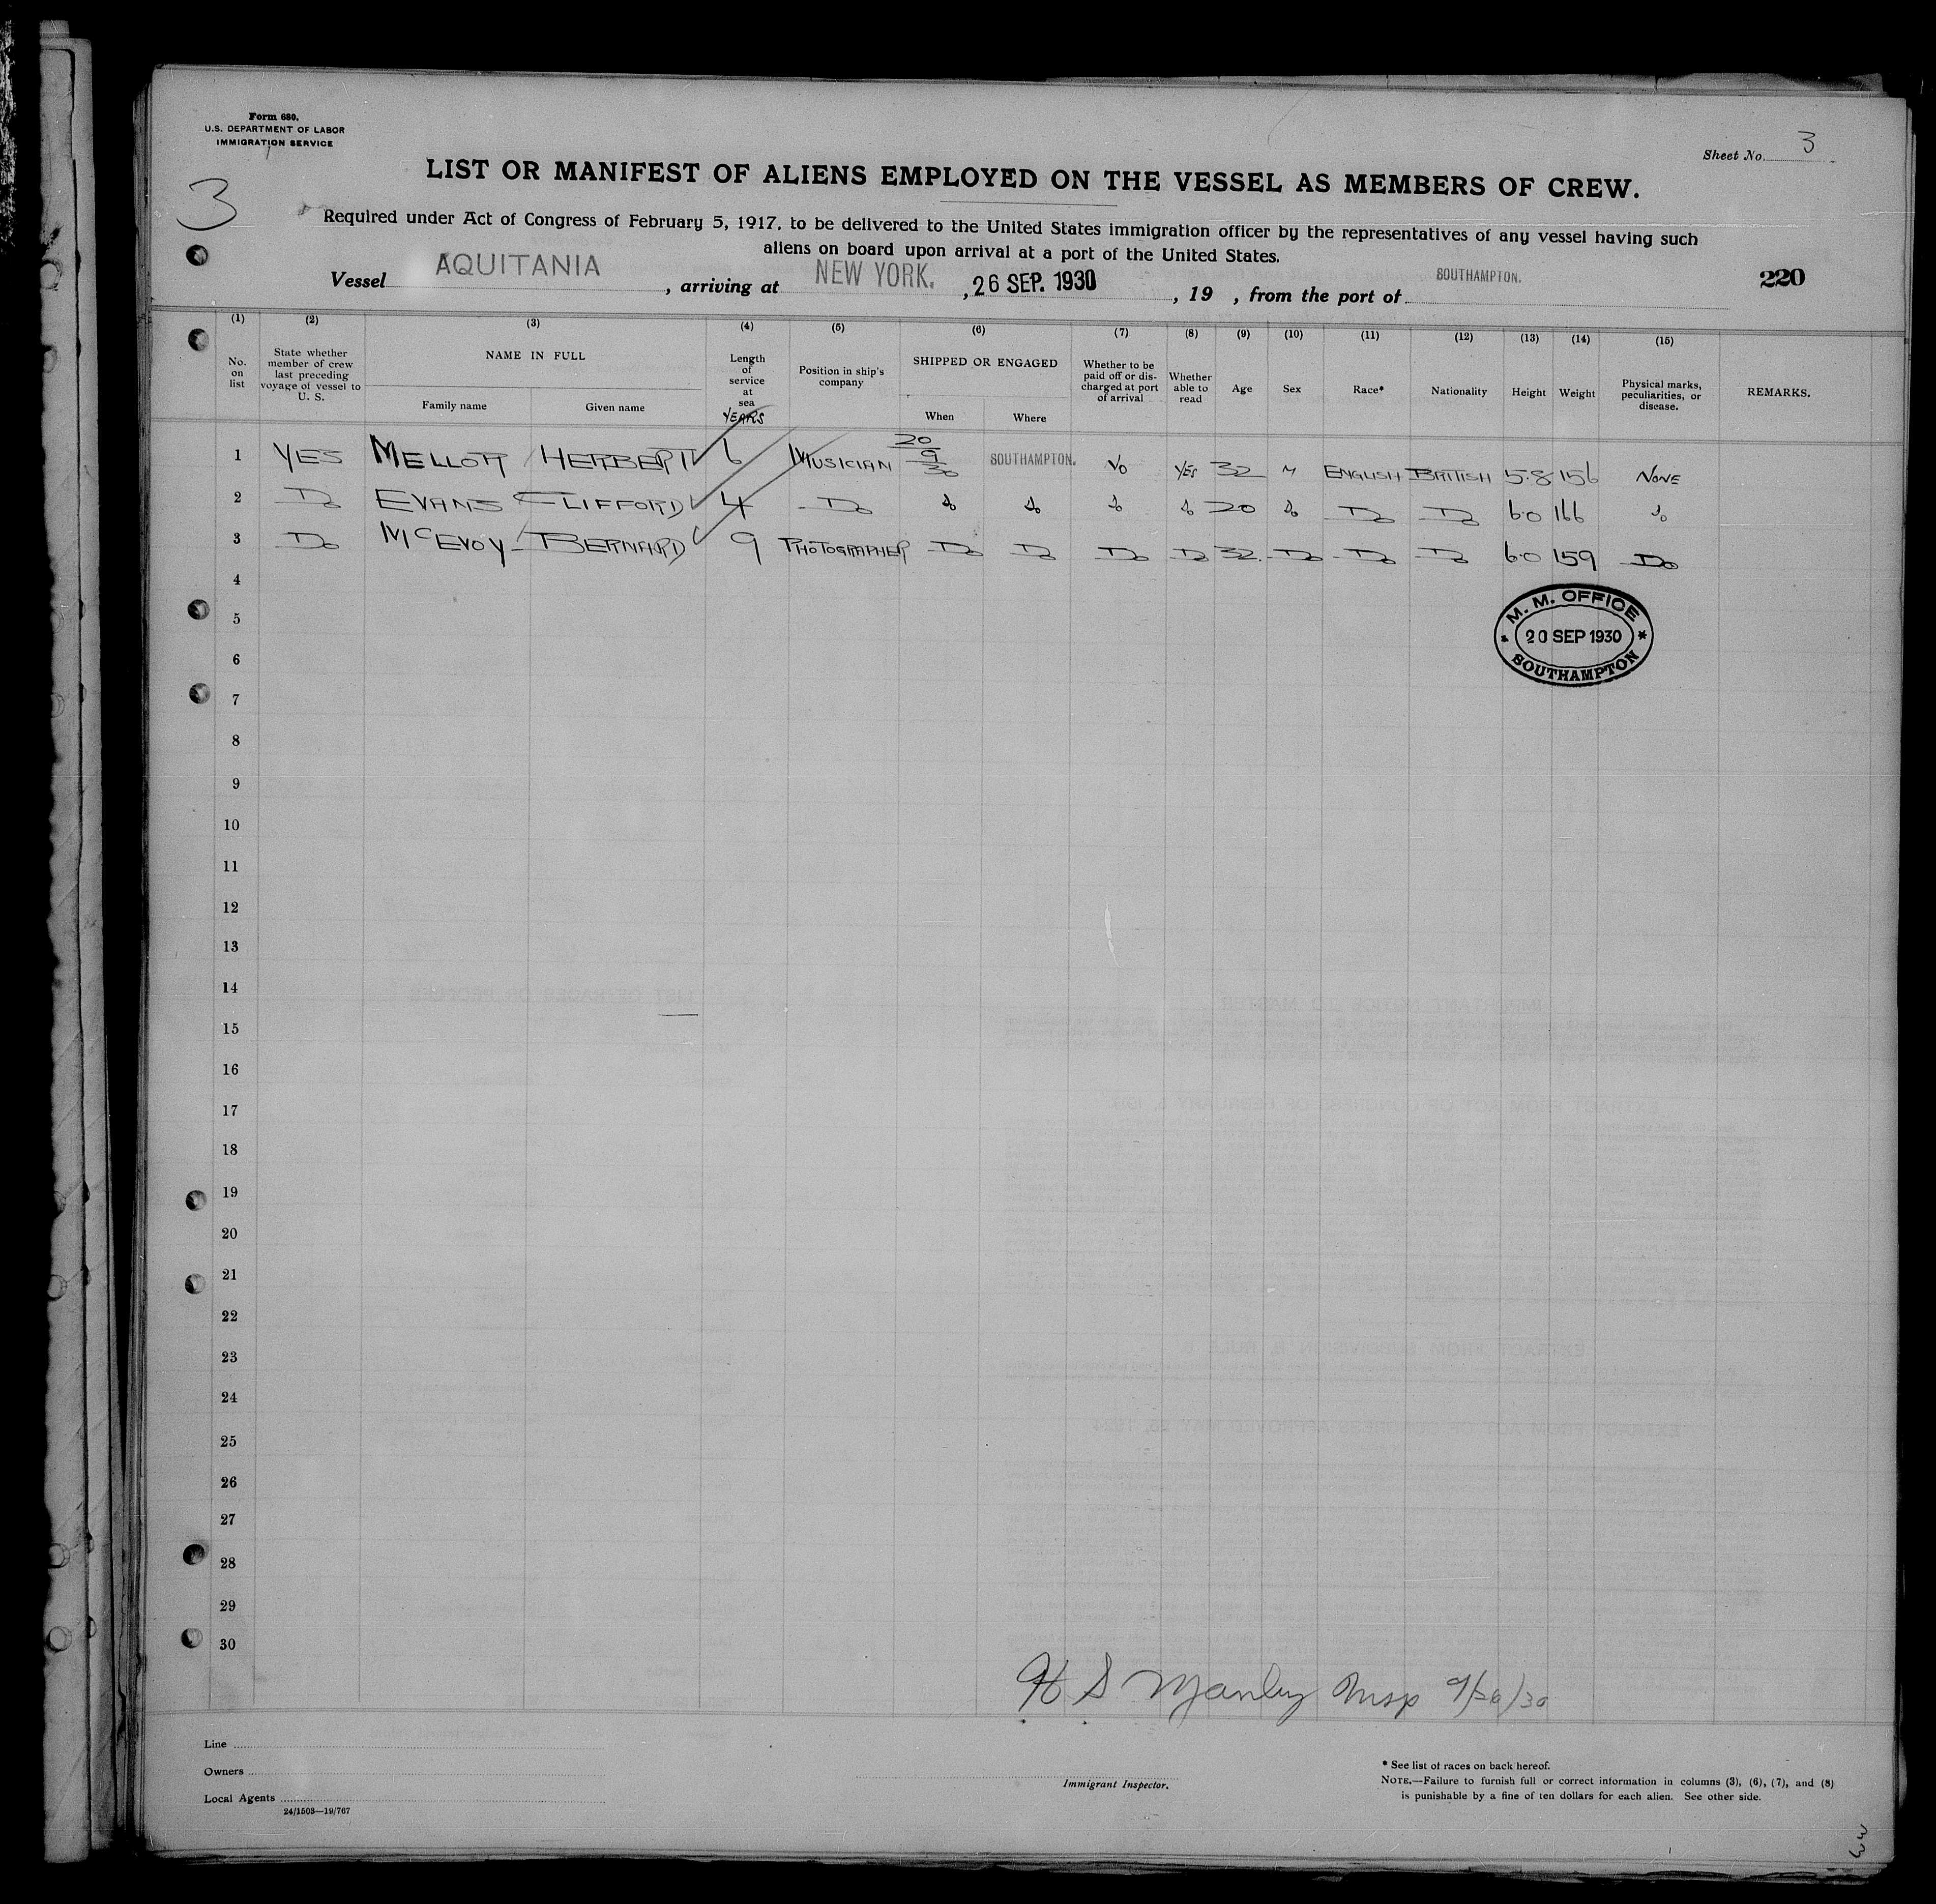 Form 680.
U.S. DEPARTMENT OF LABOR
IMMIGRATION SERVICE
Sheet No. 3
3
LIST OR MANIFEST OF ALIENS EMPLOYED ON THE VESSEL AS MEMBERS OF CREW.
Required under Act of Congress of February 5, 1917, to be delivered to the United States immigration officer by the representatives of any vessel having such
aliens on board upon arrival at a port of the United States.
Vessel AQUITANIA, arriving at NEW YORK., 26 SEP. 1930, 19 , from the port of SOUTHAMPTON. 220
(1) (2) (3) (4) (5) (6) (7) (8) (9) (10) (11) (12) (13) (14) (15)
No. on list
State whether member of crew last preceding voyage of vessel to U. S.
NAME IN FULL
Family name
Given name
Length of service at sea
YEARS
Position in ship's company
SHIPPED OR ENGAGED
When
Where
Whether to be paid off or discharged at port of arrival
Whether able to read
Age
Sex
Race*
Nationality
Height
Weight
Physical marks, peculiarities, or disease.
REMARKS.
1 YES MELLOR HERBERT 6 MUSICIAN 20/9/30 SOUTHAMPTON. No YES 32 M ENGLISH BRITISH 5.8 156 NONE
2 Do EVANS CLIFFORD 4 Do do do do do 20 do Do Do 6.0 166 do
3 Do McEVOY BERNARD 9 PHOTOGRAPHER Do Do Do Do 32. Do Do Do 6.0 159 Do
4
5
6
7
8
9
10
11
12
13
14
15
16
17
18
19
20
21
22
23
24
25
26
27
28
29
30
M. M. OFFICE
20 SEP 1930
SOUTHAMPTON
H S Manley Insp 9/26/30
Line
Owners
Local Agents
24/1503—19/767
Immigrant Inspector.
* See list of races on back hereof.
NOTE.—Failure to furnish full or correct information in columns (3), (6), (7), and (8)
is punishable by a fine of ten dollars for each alien. See other side.